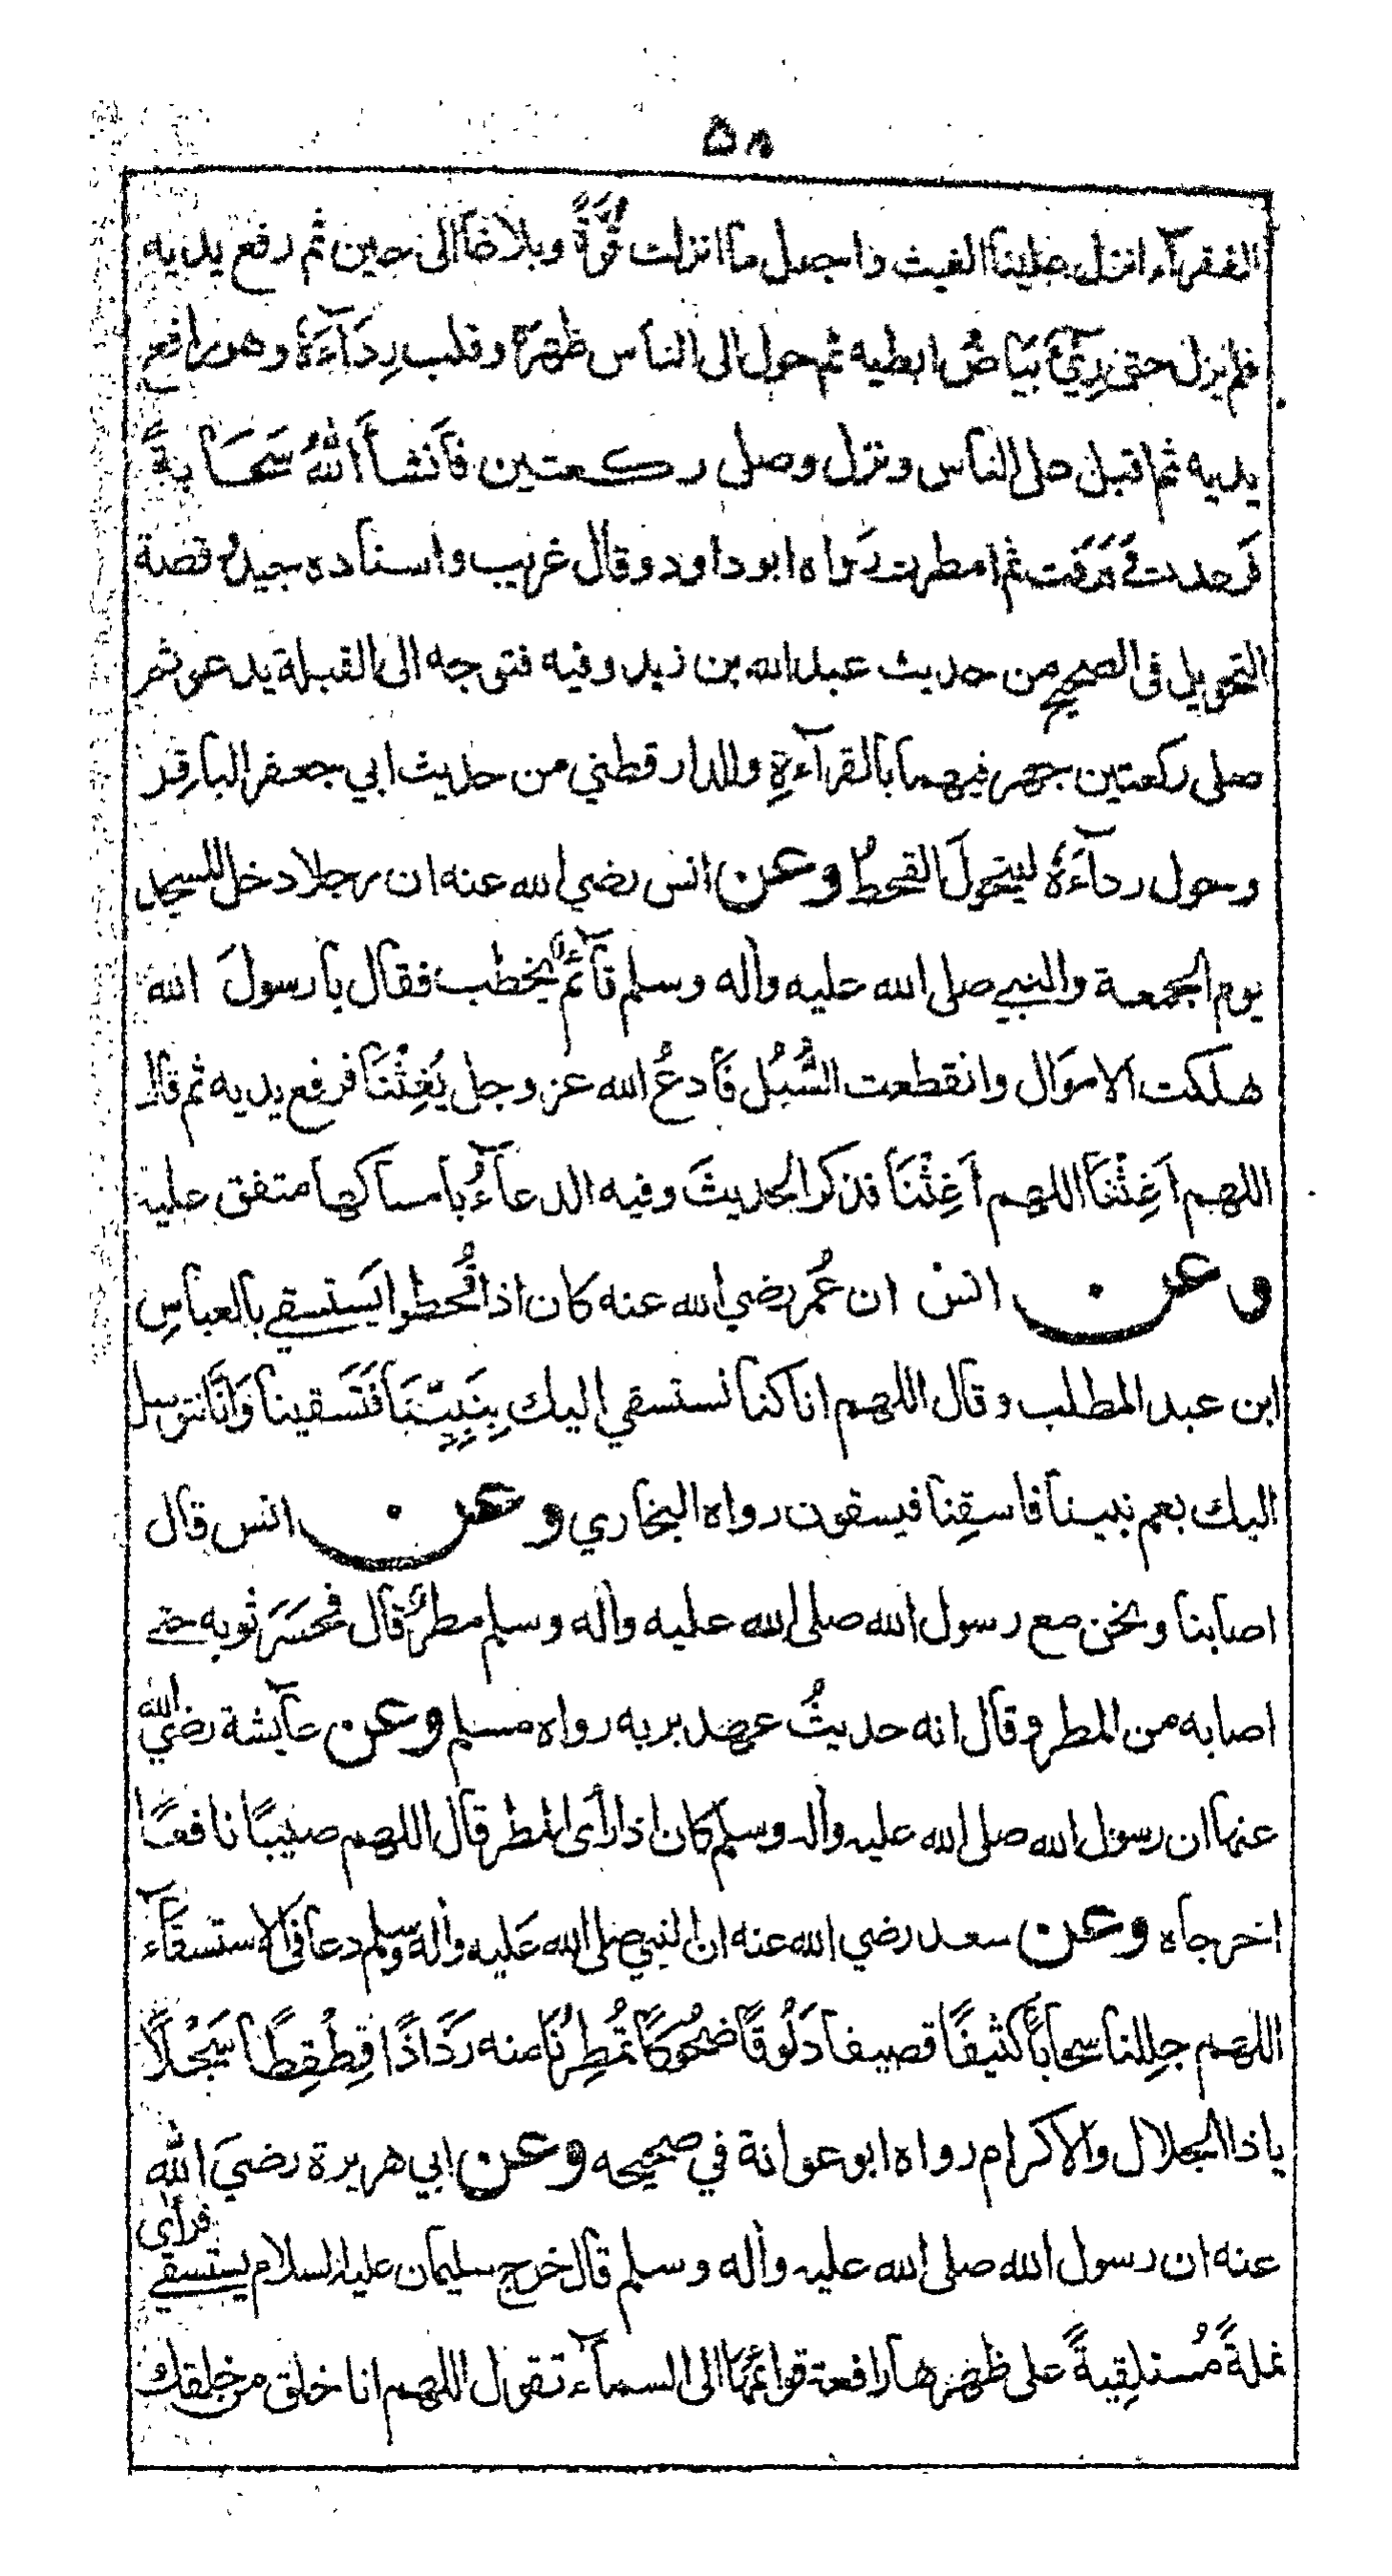 ۵۸
الفقرآء انزل علينا الغيث واجعل ما انزلت قُوَّةً وبلاغا الى حين ثم رفع يديه
فلم يزل حتى رِئِيَ بَيَاضُ ابطيه ثم حول الى الناس ظهرَهٗ وقلب رِدَآءَهٗ وهو رافع
يديه ثم اقبل على الناس ونزل وصلى ركعتين فَاَنْشَأَ اللهُ سَحَابَةً
فَرَعدت وَبَرَقَت ثم امطرت رَوَاه ابو داود وقال غريب واسناده جيدٌ وقصة
التحويل في الصحيح من حديث عبد الله بن زيد وفيه فتوجه الى القبلة يدعو ثم
صلى ركعتين جهر فيهما بالقرآءةِ وللدارقطني من حديث ابي جعفر الباقِر
وحول ردآءَهٗ ليتحولَ القحطُ وعن انس رضي الله عنه ان رجلا دخل المسجد
يوم الجمعة والنبي صلى الله عليه واٰله وسلم قآئمٌ يخطب فقال يا رسولَ الله
هلكت الاموَال وانقطعت السُّبُل فَادعُ الله عز وجل يُغِثْنَا فرفع يديه ثم قال
اللهم اَغِثْنَا اللهم اَغِثْنَا فذكر الحديثَ وفيه الدعآءُ بامساكها متفق عليه
وعن انس ان عُمَر رضي الله عنه كان اذا قُحطوا يَستسقي بالعباسِ
ابن عبد المطلب وقال اللهم انا كنا نستسقي اليك بِنَبِيِّنَا فَتَسقينا وَاِنَّا نتوسل
اليك بعم نبينا فاسقِنا فيسقون رواه البخاري وعن انس قال
اصابنا ونحن مع رسول الله صلى الله عليه واٰله وسلم مطرٌ قال فحَسَرَ ثوبه حتى
اصابه من المطر وقال انه حديثُ عهد بربه رواه مسلم وعن عآيشة رضي الله
عنها ان رسول الله صلى الله عليه واٰله وسلم كان اذا رأى المطر قال اللهم صيبًا نافعًا
اخرجاه وعن سعد رضي الله عنه ان النبي صلى الله عَليه واٰله وسلم دعا في الاستسقآء
اللهم جلِلنا سحابًا كثيفًا قصيفا دَلُوقًا ضحُوكًا تُمْطِرُنَا منه رَذَاذًا قِطْقِطًا سَجْلًا
يا ذا الجلال والاكرام رواه ابو عوانة في صحيحه وعن ابي هريرة رضيَ الله
عنه ان رسول الله صلى الله عليه واٰله وسلم قال خرج سليمان عليه السلام يستسقي فرأى
نملةً مُستلقِيةً على ظهرها رافعة قوائمها الى السمآء تقول اللهم انا خلق من خلقك